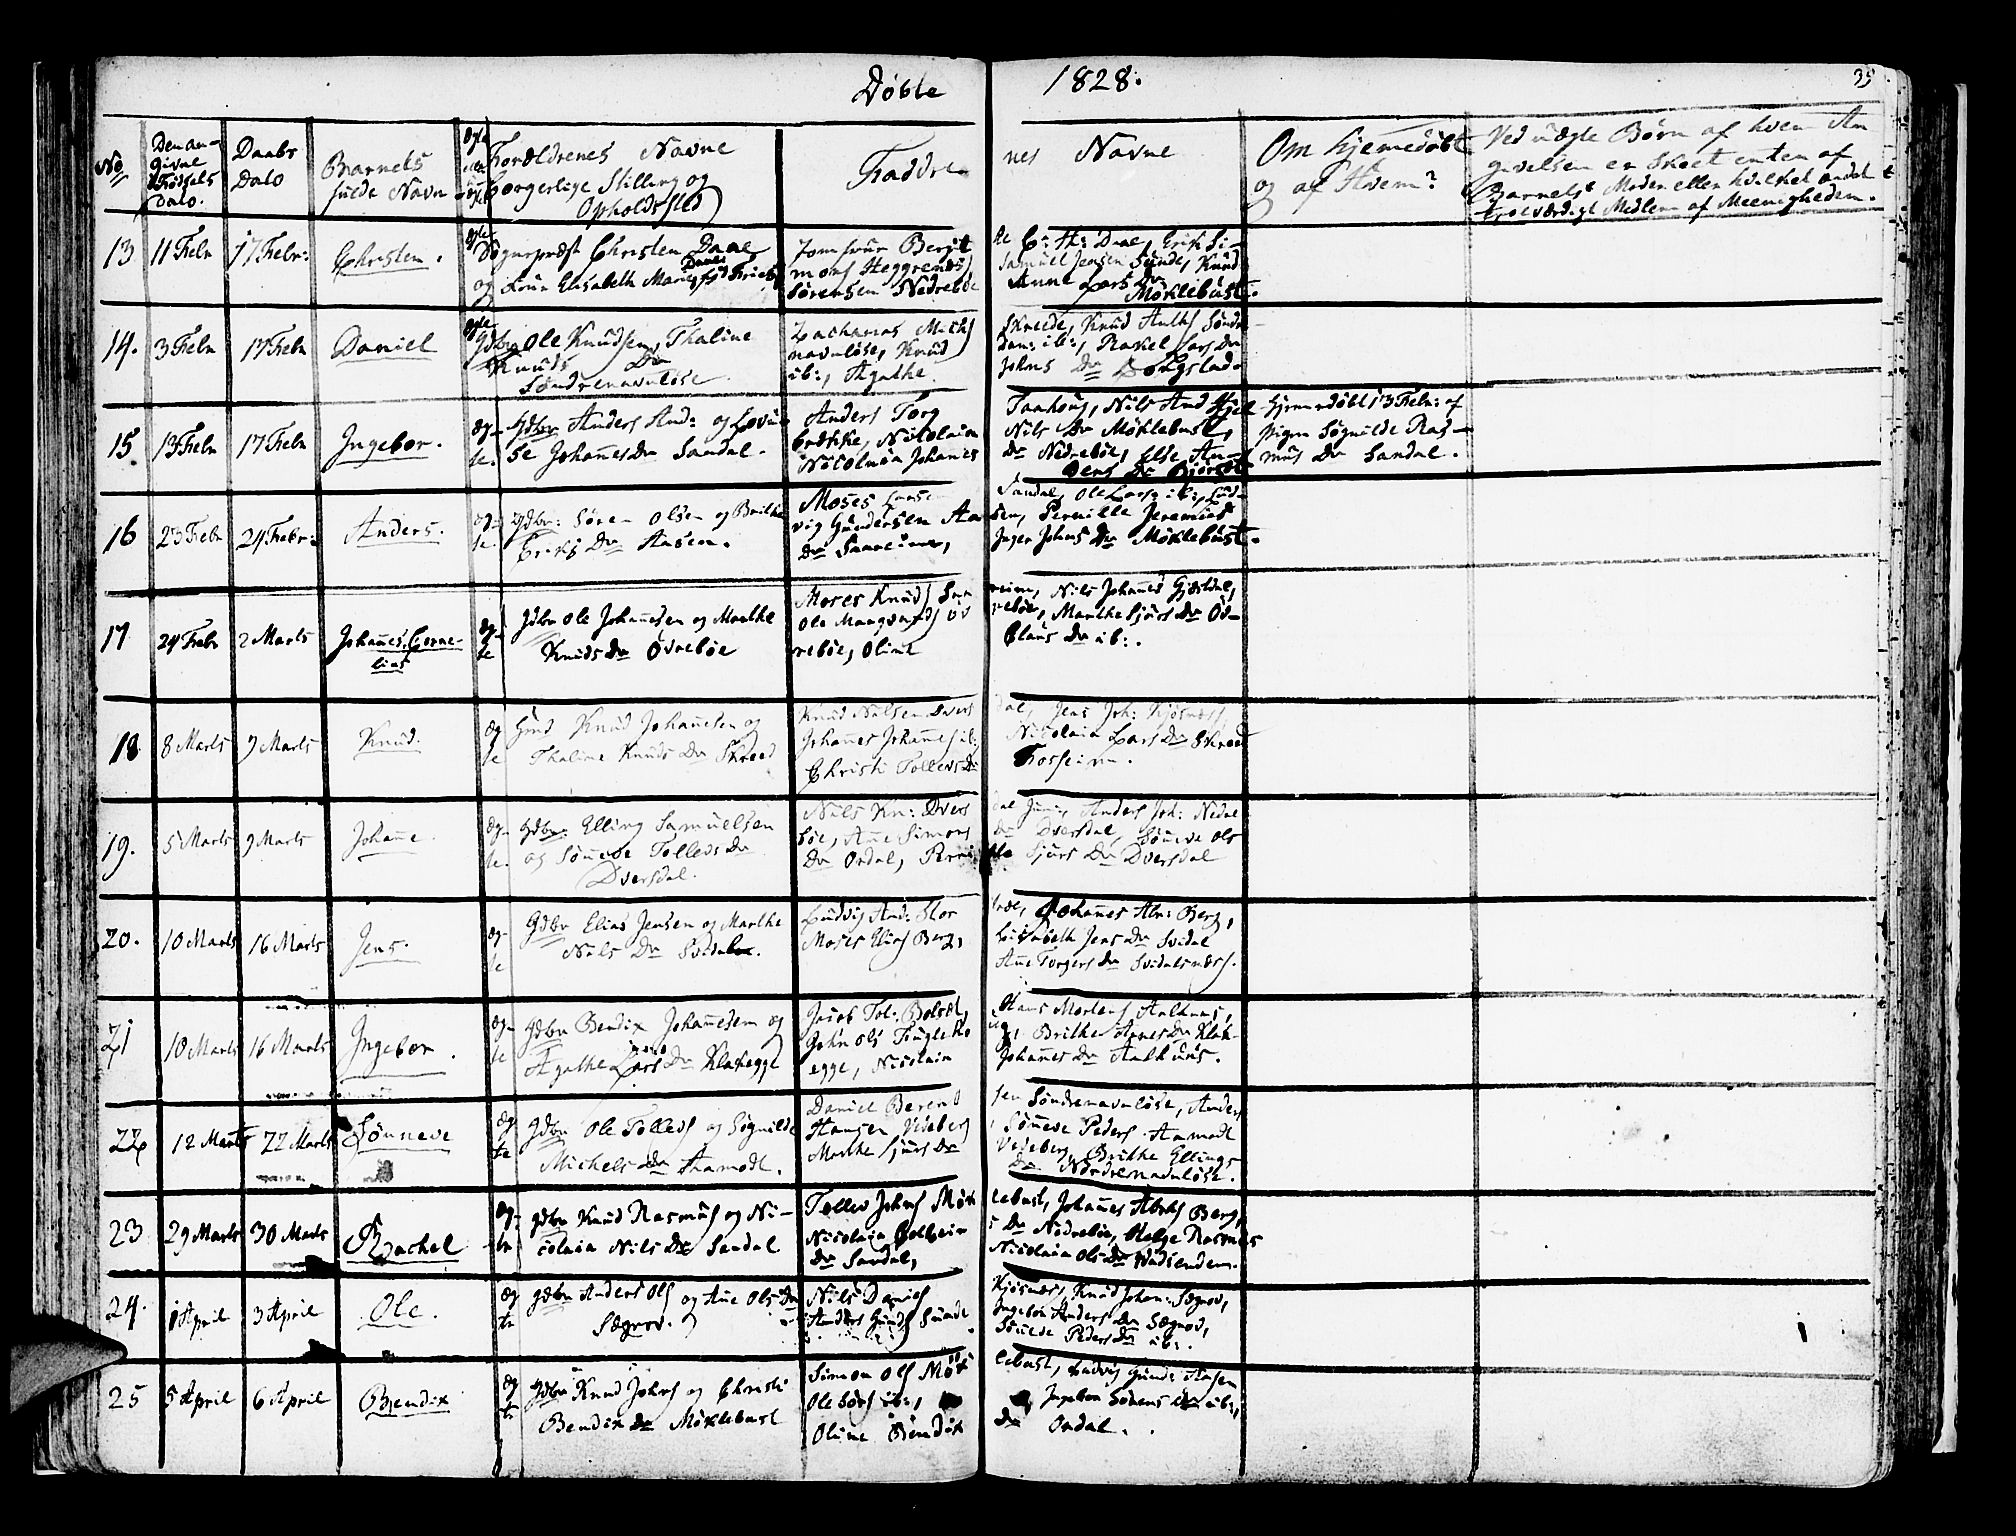 Døbte 1828. 35
No
Den angivne Fødsels Dato.
Daabs Dato
Barnets fulde Navn
ægte eller uægte
Forældrenes Navne borgerlige Stilling og Opholdssted
Faddrenes Navne
Om hjemedøbt og af Hvem?
Ved uægte Børn af hvem Angivelsen er skeet enten af Barnets Moder eller hvilket andet troeværdigt Medlem af Meenigheden.
13 11 Febr 17 Febr: Christen. ægte
Sognepræst Christen Daae
og Lovise Elisabeth Marie Daae
Jomfrue Berjit
mons Heggrenes,
Sörensen Nedreböe
C: Fr: Daae, Erik Si-
Samuel Jensen Sunde, Knud
Anne Lars Dr
Möklebust.
14. 3 Febr 17 Febr Daniel ægte
Gdbr Ole Knudsen, Thaline
Knuds Dr
Søndrenavnløse.
Zacharias Michs
navnløse, Knud
ib:, Agathe
Skreede, Knud Anths Søndre
Dan: ib:, Rakel Lars Dr
Johns Dr Longslad.
15 13 Febr 17 Febr Ingebor. ægte.
Gdbr Anders And: og Lovi-
se Johanes Dr Sandal.
Anders Torg
bække, Nicolaia
Nicolaia Johanes
Nils And Hjel
Nils Dr Møklebust,
Dr Nedrebøe, Else An-
ders Dr Bjørset
Hjemedøbt 13 Febr: af
Pigen Søgnilde Ras-
mus Dr Sandal.
16 23 Febr 24 Febr: Anders. ægte.
Gdbr: Sören Olsen og Brithe
Eriks Dr Aasen.
Moses Larsen
vig Gundersen Aa
Dr Saareime,
Sandal, Ole Lars: ib:, Lud-
sen, Pernille Jeremias
Inger Johns Dr Møklebust.
17 24 Febr 2 Marts Johanes Corne-
lius ægte
Gdbr Ole Johanesen og Marthe
Knuds Dr Øvrebøe
Moses Knuds Saa
Ole Mangvards Öv
rebøe, Oline
reim, Nils Johanes Gjesdal,
rebøe, Marthe Sjurs Dr Öv-
Claus Dr ib:.
18 8 Marts 9 Marts Knud. ægte
Knud Johanesen og
Thaline Knuds Dr Skreed
Knud Nilsen Dvers
Johanes Johanes ib:
Christi Tollevs Dr
dal, Jens Joh: Kjøsnæs,
Nicolaia Lars Dr Skreed
Fosseim.
19. 5 Marts 9 Marts Johane. ægte.
Gdbr: Elling Samuelsen
og Söneve Tollevs Dr
Dversdal.
Nils Kn: Dvers
bøe, Ane Simons
Dr Ordal, Perni
dal Jun:, Anders Joh: Nedre
Dr Dversdal, Söneve Ols
lle Sjurs Dr Dversdal
20. 10 Marts 16 Marts Jens. ægte
Gdbr Elias Jensen og Marthe
Nils Dr Svidal.
Ludvig And: Stor
Moses Elias Berg,
træe, Johanes Abr: Berg,
Lisabeth Jens Dr Svidal
Ane Torgers Dr Svidalsnæs.
21 10 Marts 16 Marts Ingebor. ægte
Gdbr Bendix Johanesen og
Agathe Lars Dr Klakegge
Jacob Tol: Bolset,
John Ols Fuglehe
egge, Nicolaia
Hans Mortens Aalhuus,
ig, Brithe Aanes Dr Klak-
Johanes Dr Aalhuus.
22 12 Marts 22 Marts Sönneve ægte
Gdbr Ole Tollevs og Sögnilde
Michels Dr Aamodt.
Daniel Berent
Hansen Vedeberg
Marthe Sjurs Dr
sen Søndrenavnløse, Anders
Söneve Peders Aamodt
Vedeberg, Brithe Ellings
Dr Nordrenavnløse.
23 29 Marts 30 Marts Rachel ægte
Gdbr Knud Rasmus og Ni-
colaia Nils Dr Sandal
Tollev Johns Møk
Nicolaia Colbein
Dr Sandal,
lebust, Johanes Abrhs Berg,
s Dr Nedrebøe, Helge Rasmus
Nicolaia Ols Dr Vadsenden.
24. 1 April 3 April Ole. ægte
Gdbr Anders Ols og Ane Ols Dr
Sægrov.
Nils Daniels
Anders Gunds Sunde
Kjøsnæs, Knud Johan: Sægrov,
Ingebor Anders Dr Sægrov,
Sönede Peders Dr ib:.
25 5 April 6 April Bendix ægte
Gdbr Knud Johns og Christi
Bendix Dr Møklebust
Simon Ols Møk
Ole Lars ib:,
Oline Bendix
lebust, Ludvig Gund: Aasen
Ingebor Sörens Dr ib:,
Dr Ordal.